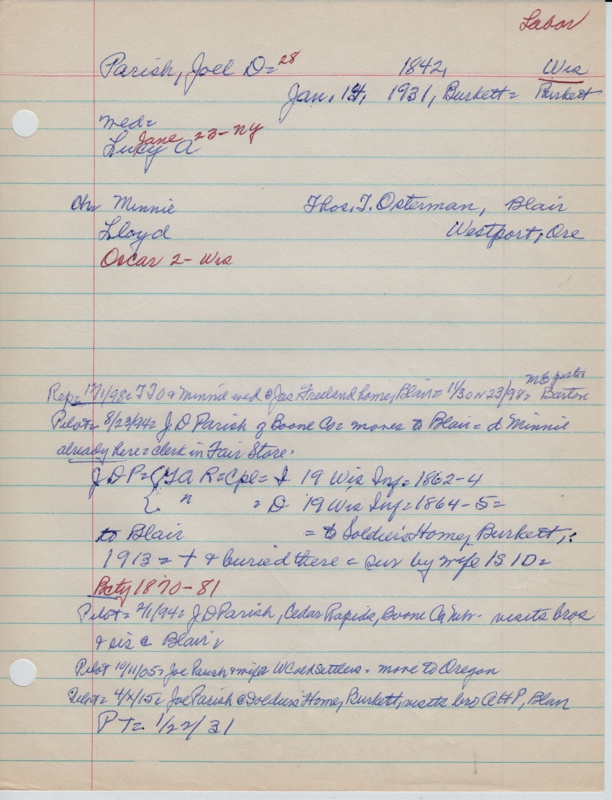 Labor
Parish, Joel D= 28 1842, Wis
Jan. 14, 1931, Burkett= Burkett
med=
Jane 23-NY
Lucy A
Chr Minnie Thos. T. Osterman, Blair
Lloyd Westport, Ore
Oscar 2- Wis
ME pastor
Rep= 12/1/98= TTO & Minnie wed @ Jas Freeland home, Blair= 11/30 or 23/98= Barton
Pilot= 8/23/94= J D Parish of Boone Co= moves to Blair= d Minnie
already here= clerk in Fair Store.
J D P= GAR= Cpl= I 19 Wis Inf= 1862-4
{ " = D 19 Wis Inf= 1864-5=
to Blair = to Soldiers Home, Burkett,
1913= + & buried there= sur by wife 1S 1D=
Bcty 1870-81
Pilot= 2/1/94= J D Parish, Cedar Rapids, Boone Co Nbr- visits bros
& sis @ Blair=
Pilot 10/11/05= Joe Parish & wife WC old Settlers. move to Oregon
Pilot= 4/x/15= Joe Parish @ Soldiers Home, Burkett, visits bro AHP, Blair
PT= 1/22/31